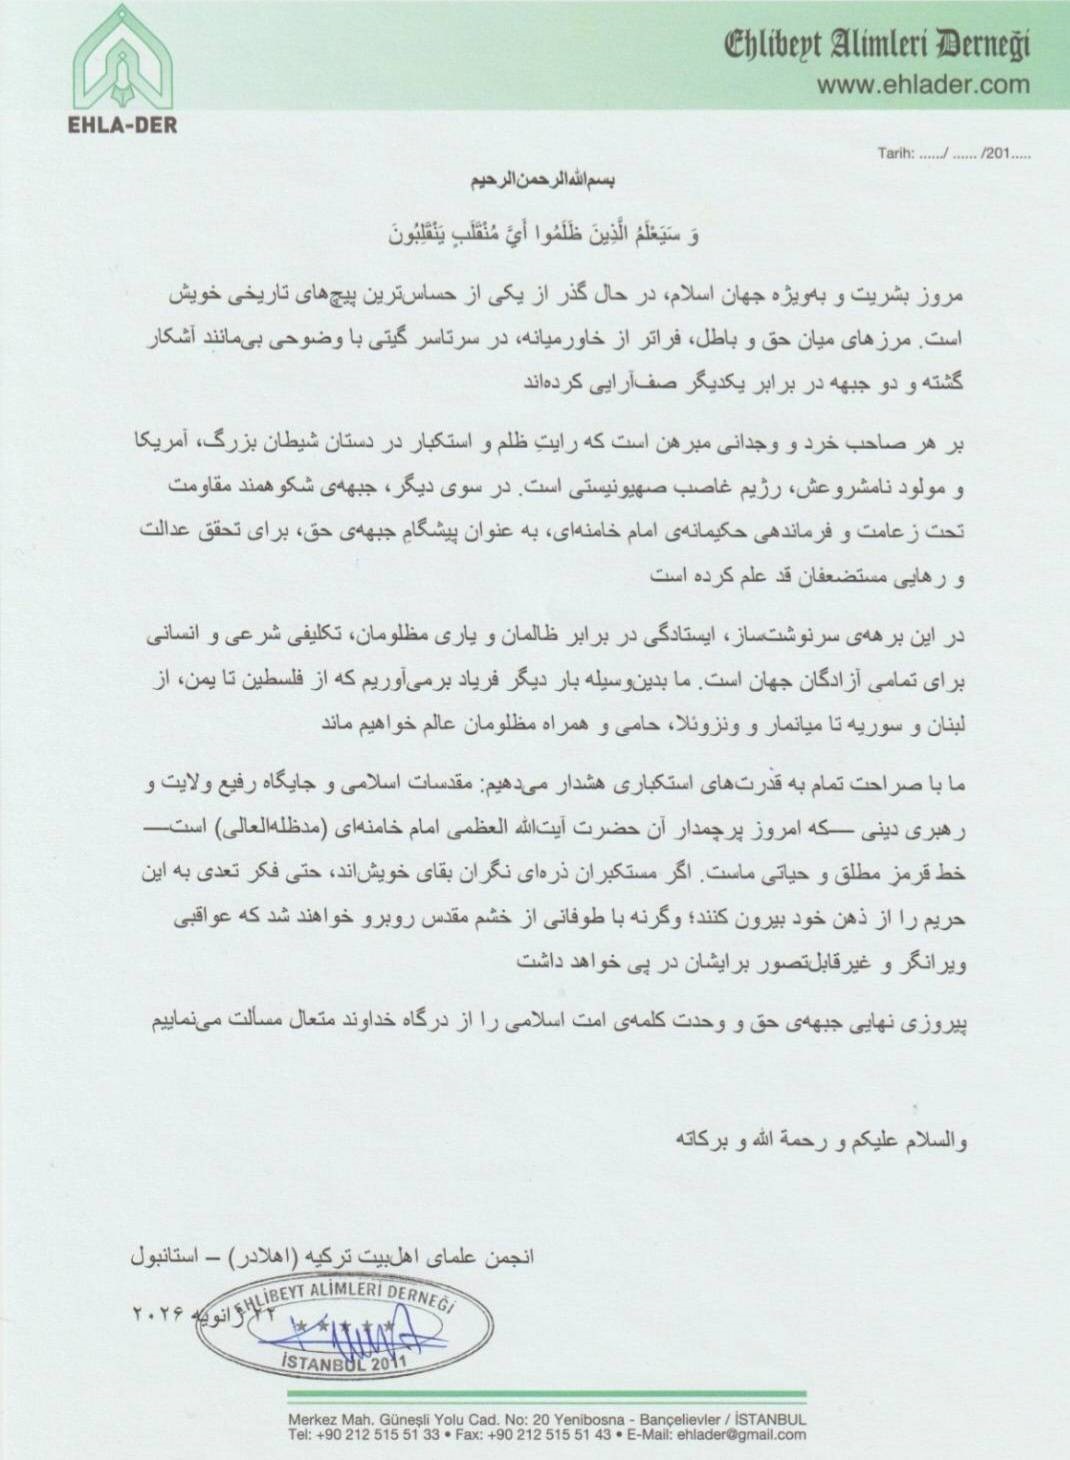 Ehlibeyt Alimleri Derneği
www.ehlader.com
EHLA-DER
Tarih: ....../ ...... /201.....
بسم‌الله‌الرحمن‌الرحیم
وَ سَیَعْلَمُ الَّذِینَ ظَلَمُوا أَيَّ مُنْقَلَبٍ یَنْقَلِبُونَ
مروز بشریت و به‌ویژه جهان اسلام، در حال گذر از یکی از حساس‌ترین پیچ‌های تاریخی خویش
است. مرزهای میان حق و باطل، فراتر از خاورمیانه، در سرتاسر گیتی با وضوحی بی‌مانند آشکار
گشته و دو جبهه در برابر یکدیگر صف‌آرایی کرده‌اند
بر هر صاحب خرد و وجدانی مبرهن است که رایتِ ظلم و استکبار در دستان شیطان بزرگ، آمریکا
و مولود نامشروعش، رژیم غاصب صهیونیستی است. در سوی دیگر، جبهه‌ی شکوهمند مقاومت
تحت زعامت و فرماندهی حکیمانه‌ی امام خامنه‌ای، به عنوان پیشگامِ جبهه‌ی حق، برای تحقق عدالت
و رهایی مستضعفان قد علم کرده است
در این برهه‌ی سرنوشت‌ساز، ایستادگی در برابر ظالمان و یاری مظلومان، تکلیفی شرعی و انسانی
برای تمامی آزادگان جهان است. ما بدین‌وسیله بار دیگر فریاد برمی‌آوریم که از فلسطین تا یمن، از
لبنان و سوریه تا میانمار و ونزوئلا، حامی و همراه مظلومان عالم خواهیم ماند
ما با صراحت تمام به قدرت‌های استکباری هشدار می‌دهیم: مقدسات اسلامی و جایگاه رفیع ولایت و
رهبری دینی —که امروز پرچمدار آن حضرت آیت‌الله العظمی امام خامنه‌ای (مدظله‌العالی) است—
خط قرمز مطلق و حیاتی ماست. اگر مستکبران ذره‌ای نگران بقای خویش‌اند، حتی فکر تعدی به این
حریم را از ذهن خود بیرون کنند؛ وگرنه با طوفانی از خشم مقدس روبرو خواهند شد که عواقبی
ویرانگر و غیرقابل‌تصور برایشان در پی خواهد داشت
پیروزی نهایی جبهه‌ی حق و وحدت کلمه‌ی امت اسلامی را از درگاه خداوند متعال مسألت می‌نماییم
والسلام علیکم و رحمة الله و برکاته
انجمن علمای اهل‌بیت ترکیه (اهلادر) – استانبول
۲۲ ژانویه ۲۰۲۶
EHLİBEYT ALİMLERİ DERNEĞİ
İSTANBUL 2011
Merkez Mah. Güneşli Yolu Cad. No: 20 Yenibosna - Bançelievler / İSTANBUL
Tel: +90 212 515 51 33 • Fax: +90 212 515 51 43 • E-Mail: ehlader@gmail.com